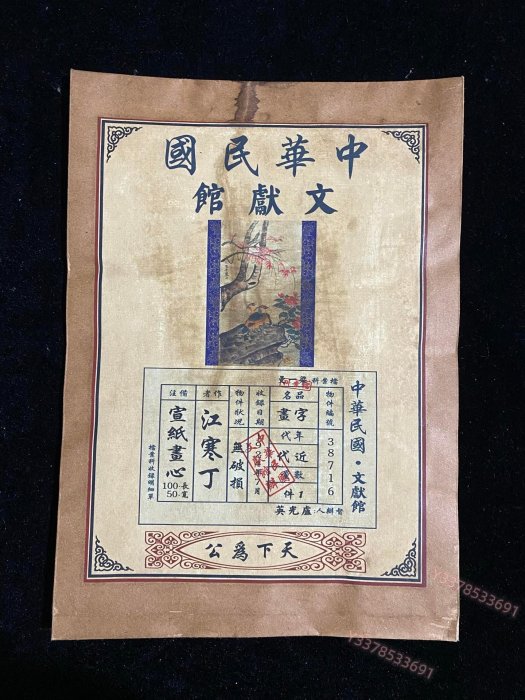 中華民國
文獻館
中華民國·文獻館
檔案科
物件編號
38716
品名
字畫
年代
近代
件數
1件
收錄日期
物件狀況
無破損
作者
江寒丁
備注
宣紙畫心
長100
寬50
督辦人:盧光英
檔案科收錄明細單
天下爲公
13378533691
13378533691